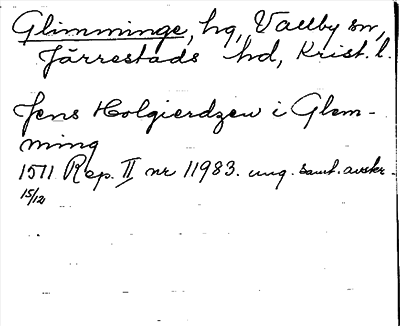 Glimminge, hg, Vallby sn,
Järrestads hd, Krist. l.
Jens Holgierdzen i Glem-
ming
1511 Rep. II nr 11983. ung. samt. avskr.
15/12